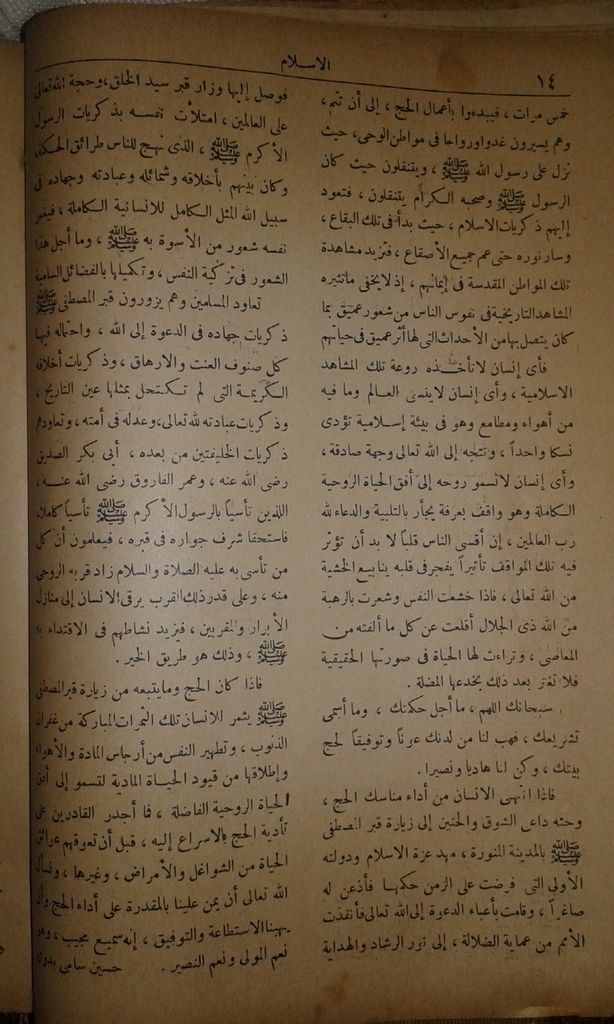 الاسلام
١٤
خمس مرات ، فيبدءوا بأعمال الحج ، إلى أن تتم ،
وهم يسيرون غدوا ورواحا فى مواطن الوحى، حيث
نزل على رسول الله ﷺ ، ويتنقلون حيث كان
الرسول ﷺ وصحبه الكرام يتنقلون ، فتعود
إليهم ذكريات الاسلام ، حيث بدأ فى تلك البقاع ،
وسار نوره حتى عم جميع الأصقاع ، فتزيد مشاهدة
تلك المواطن المقدسة فى إيمانهم ، إذ لا يخفى ما تثيره
المشاهد التاريخية فى نفوس الناس من شعور عميق بما
كان يتصل بها من الأحداث التى لها أثر عميق فى حياتهم
فأى إنسان لا تأخذه روعة تلك المشاهد
الاسلامية ، وأى إنسان لا ينسى العالم وما فيه
من أهواء ومطامع وهو فى بيئة إسلامية تؤدى
نسكا واحداً ، وتتجه إلى الله تعالى وجهة صادقة ،
وأى إنسان لا تسمو روحه إلى أفق الحياة الروحية
الكاملة وهو واقف بعرفة يجأر بالتلبية والدعاء لله
رب العالمين ، إن أقسى الناس قلباً لا بد أن تؤثر
فيه تلك المواقف تأثيراً يفجر فى قلبه ينابيع الخشية
من الله تعالى ، فاذا خشعت النفس وشعرت بالرهبة
من الله ذى الجلال أقلعت عن كل ما ألفته من
المعاصى ، وتراءت لها الحياة فى صورتها الحقيقية
فلا تغتر بعد ذلك بخدعها المضلة .
سبحانك اللهم ، ما أجل حكمتك ، وما أسمى
تشريعك ، فهب لنا من لدنك عونا وتوفيقاً لحج
بيتك ، وكن لنا هاديا ونصيرا .
فاذا انتهى الانسان من أداء مناسك الحج ،
وحثه داعى الشوق والحنين إلى زيارة قبر المصطفى
ﷺ بالمدينة المنورة ، مهد عزة الاسلام ودولته
الأولى التى فرضت على الزمن حكمها فأذعن له
صاغراً ، وقامت بأعباء الدعوة إلى الله تعالى فأنقذت
الأمم من عماية الضلالة ، إلى نور الرشاد والهداية
فوصل إليها وزار قبر سيد الخلق ، وحجة الله تعالى
على العالمين ، امتلأت نفسه بذكريات الرسول
الأكرم ﷺ ، الذى نهج للناس طرائق الحكمة
وكان بينهم بأخلاقه وشمائله وعبادته وجهاده فى
سبيل الله المثل الكامل للانسانية الكاملة ،
نفسه شعور من الأسوة به ﷺ ، وما أجل هذا
الشعور فى تزكية النفس ، وتكميلها بالفضائل السامية
تعاود المسلمين وهم يزورون قبر المصطفى ﷺ
ذكريات جهاده فى الدعوة إلى الله ، واحتماله فيها
كل صنوف العنت والارهاق ، وذكريات أخلاقه
الكريمة التى لم تكتحل بمثلها عين التاريخ ،
وذكريات عبادته لله تعالى، وعدله فى أمته ، وتعاودهم
ذكريات الخليفتين من بعده ، أبى بكر الصديق
رضى الله عنه ، وعمر الفاروق رضى الله عنه ،
اللذين تأسيا بالرسول الأكرم ﷺ تأسيا كاملا،
فاستحقا شرف جواره فى قبره ، فيعلمون أن كل
من تأسى به عليه الصلاة والسلام زاد قربه الروحى
منه ، وعلى قدر ذلك القرب يرقى الانسان إلى منازل
الأبرار والمقربين ، فيزيد نشاطهم فى الاقتداء به
ﷺ ، وذلك هو طريق الخير .
فاذا كان الحج وما يتبعه من زيارة قبر المصطفى
ﷺ يثمر الانسان تلك الثمرات المباركة من غفران
الذنوب ، وتطهير النفس من أرجاس المادة والأهواء
وإطلاقها من قيود الحياة المادية لتسمو إلى أفق
الحياة الروحية الفاضلة ، فما أجدر القادرين على
تأدية الحج بالاسراع إليه ، قبل أن تعوقهم عوائق
الحياة من الشواغل والأمراض ، وغيرها ، ونسأل
الله تعالى أن يمن علينا بالمقدرة على أداء الحج وأن
يهبنا الاستطاعة والتوفيق ، إنه سميع مجيب ، وهو
نعم المولى ونعم النصير . حسين سامى بدوى